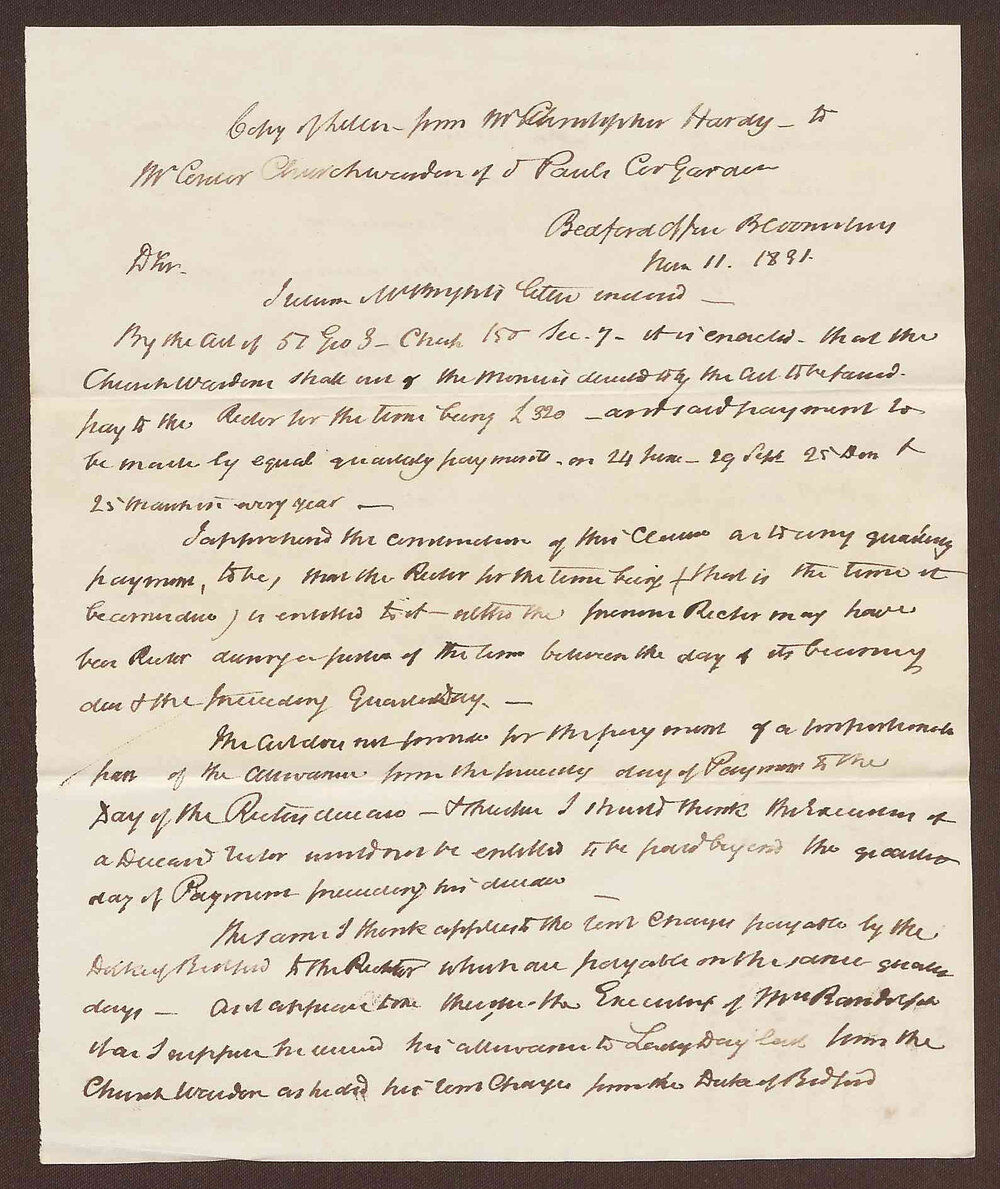 Copy of Letter from Mr Christopher Hardy – to
Mr Churchwarden of St Pauls Cov Garden
Bedford Office Bloomsbury
11. 1831.
D Sir.
I return Mr letter enclosed –
By the Act of 57 Geo 3 – Chap 150 Sec. 7 – it is enacted – that the
Church Wardens shall out of the Monies directed by the Act to be raised
pay to the Rector for the time being £320 – and said payment to
be made by equal quarterly payments – on 24 June – 29 Sept 25 Decr &
25 March in every year –
I apprehend the construction of this Clause as to any quarterly
payment, to be, that the Rector for the time being (that is the time it
becomes due) is entitled to it – altho the former Rector may have
been Rector during a portion of the time between the day of its becoming
due & the preceding Quarter Day. –
The Act does not provide for the payment of a proportionate
part of the allowance from the preceding day of Payment to the
Day of the Rectors decease – & therefore I should think the Executors of
a Deceased Rector would not be entitled to be paid beyond the quarter
day of Payment preceding his decease –
The same I think applies to the rent Charges payable by the
Duke of Bedford to the Rector which are payable on the same quarter
days – And it appears to me therefore the Executor of Mr Randolph
as I suppose he received his allowance to Lady Day last from the
Church Warden as he did his rent Charges from the Duke of Bedford